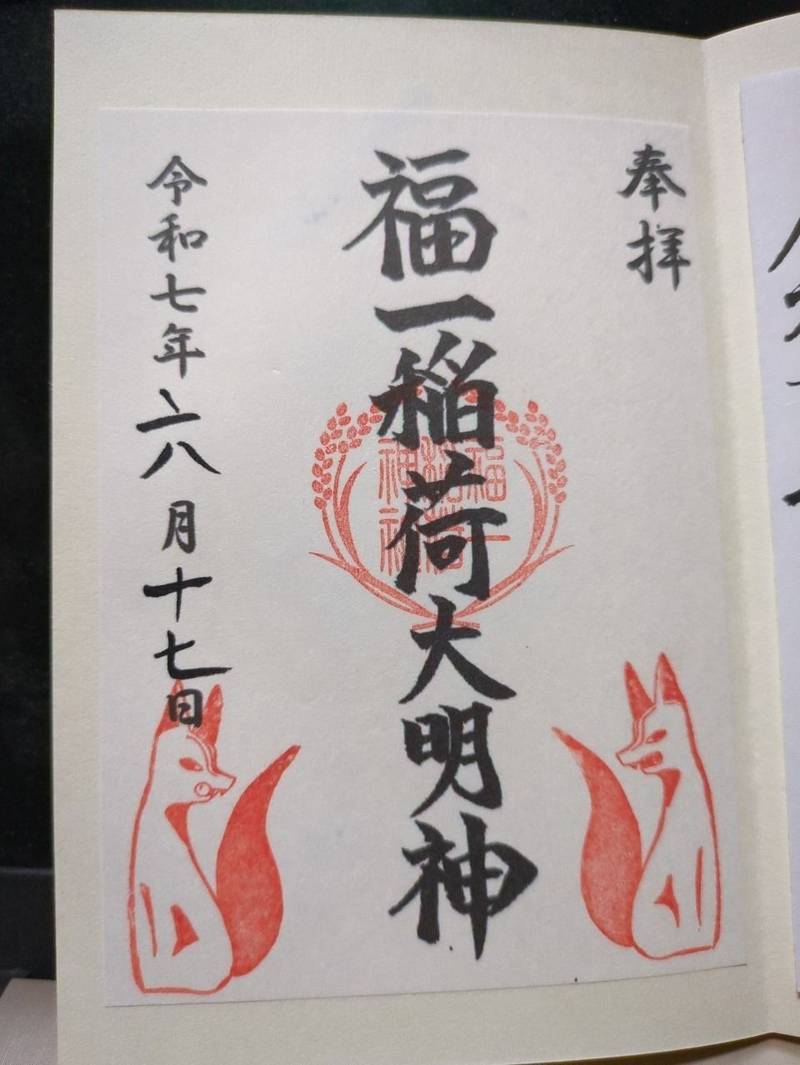 奉拝
福一稲荷大明神
福一
稲荷
神社
令和七年六月十七日